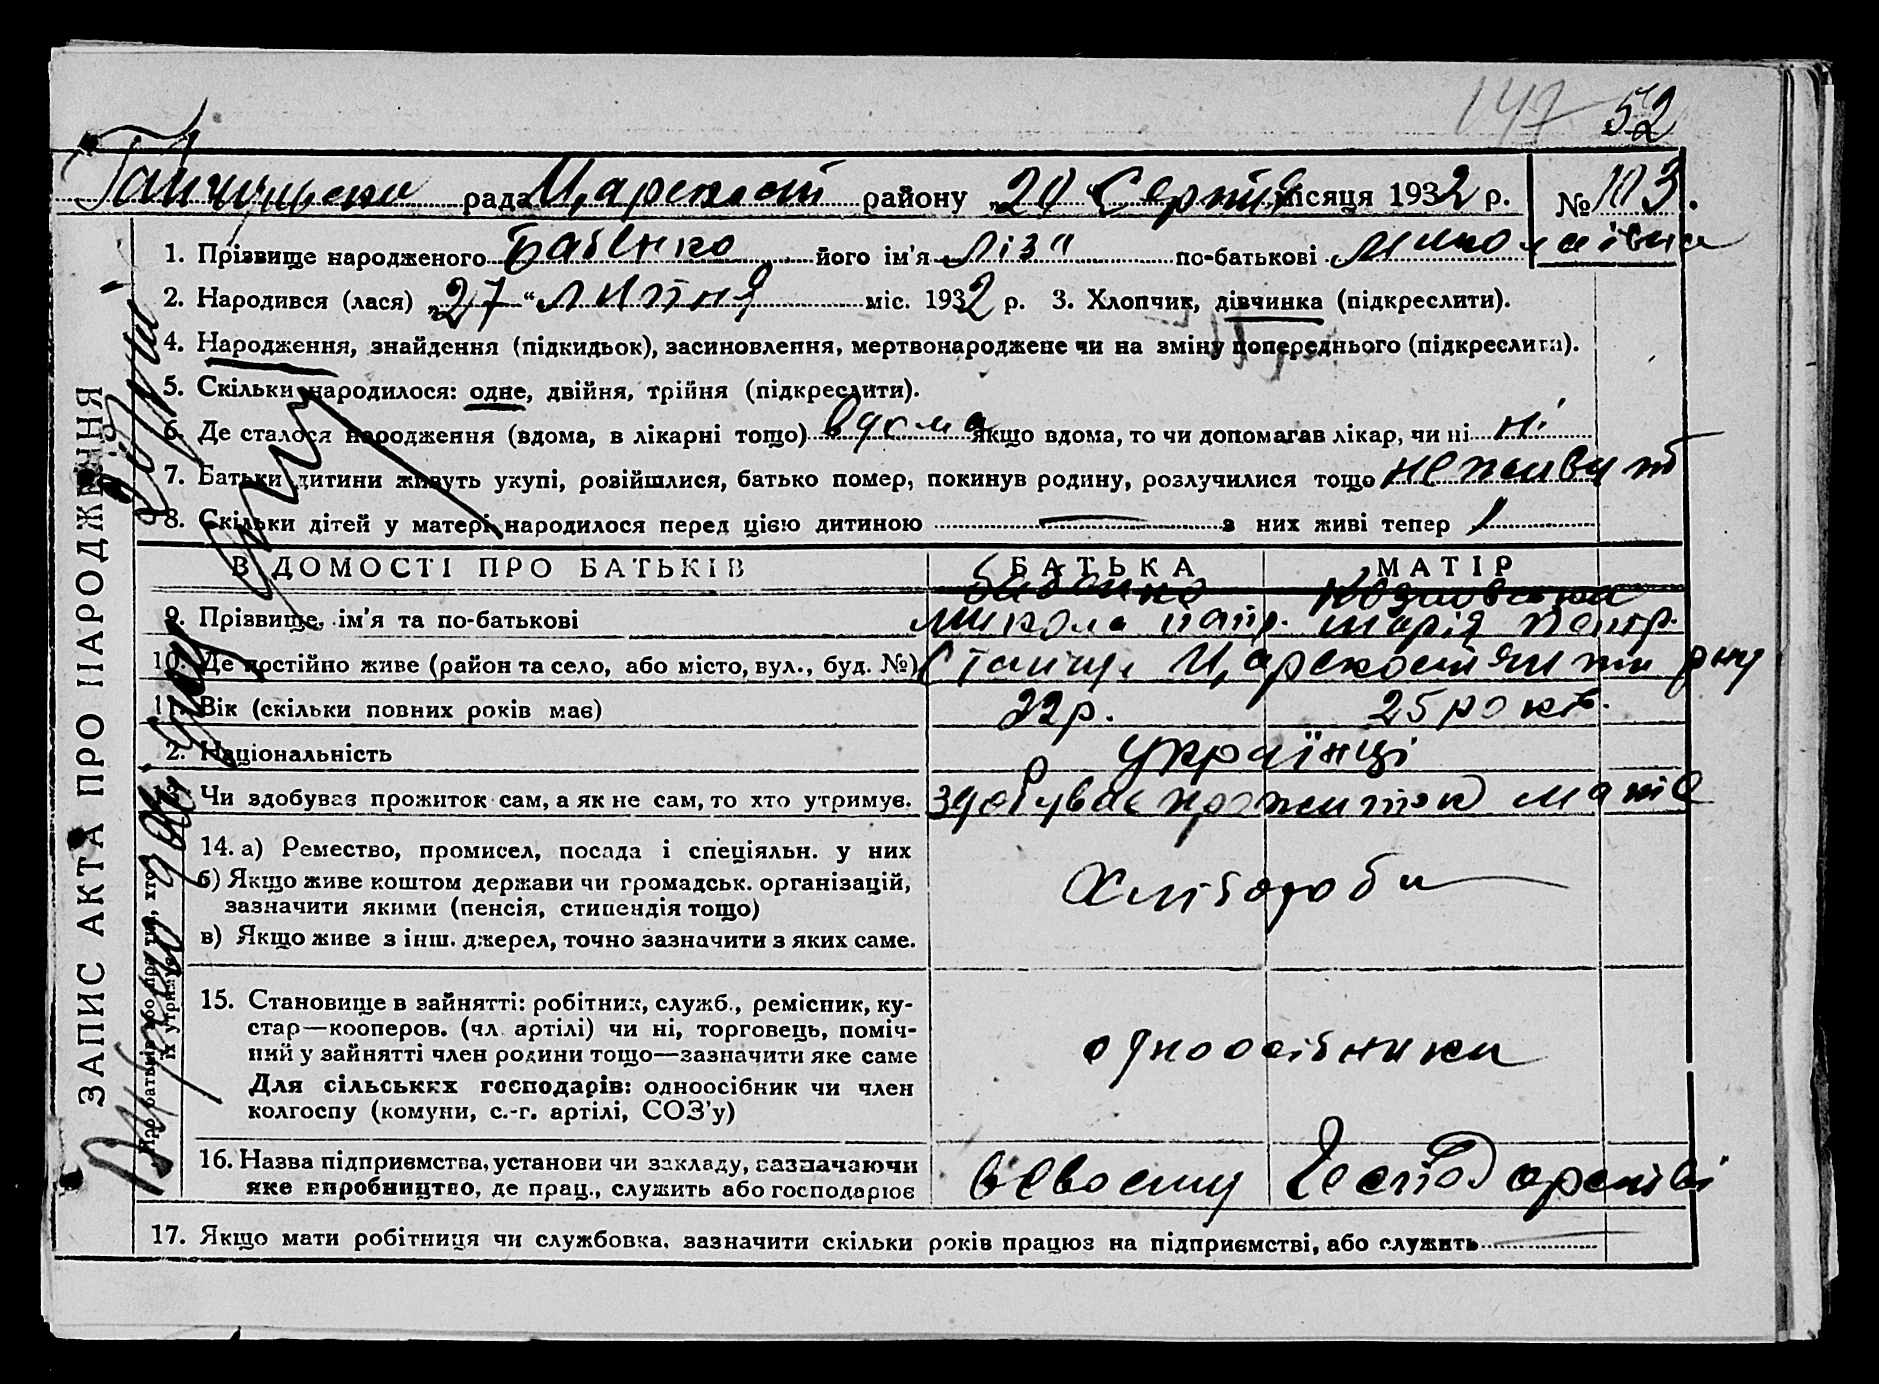 147 52
рада Царекост району 20 Серпня місяця 1932 р. № 103.
1. Прізвище народженого Бабенко його ім'я Ліза по-батькові Миколаївна
2. Народився (лася) „27“ липня міс. 1932 р. 3. Хлопчик, дівчинка (підкреслити).
4. Народження, знайдення (підкидьок), засиновлення, мертвонароджене чи на зміну попереднього (підкреслити).
5. Скільки народилося: одне, двійня, трійня (підкреслити).
6. Де сталося народження (вдома, в лікарні тощо) вдома якщо вдома, то чи допомагав лікар, чи ні ні
7. Батьки дитини живуть укупі, розійшлися, батько помер, покинув родину, розлучилися тощо не живуть
8. Скільки дітей у матері народилося перед цією дитиною — з них живі тепер 1
ВІДОМОСТІ ПРО БАТЬКІВ БАТЬКА МАТІР
Бабенко
9. Прізвище, ім'я та по-батькові Микола Марія
10. Де постійно живе (район та село, або місто, вул., буд. №)
11. Вік (скільки повних років має) 22 р. 25 років.
12. Національність українці
13. Чи здобуває прожиток сам, а як не сам, то хто утримує. здобуває прожиток мати
14. а) Ремество, промисел, посада і спеціяльн. у них
б) Якщо живе коштом держави чи громадськ. організацій,
зазначити якими (пенсія, стипендія тощо)
Хлібороби
в) Якщо живе з інш. джерел, точно зазначити з яких саме.
15. Становище в зайнятті: робітник, служб., ремісник, ку-
стар—кооперов. (чл. артілі) чи ні, торговець, поміч-
ний у зайнятті член родини тощо—зазначити яке саме
одноосібники
Для сільських господарів: одноосібник чи член
колгоспу (комуни, с.-г. артілі, СОЗ'у)
16. Назва підприємства, установи чи закладу, зазначаючи
яке виробництво, де прац., служить або господарює
в свосму Господарстві
17. Якщо мати робітниця чи службовка, зазначити скільки років працює на підприємстві, або служить
ЗАПИС АКТА ПРО НАРОДЖЕННЯ
їх утримує